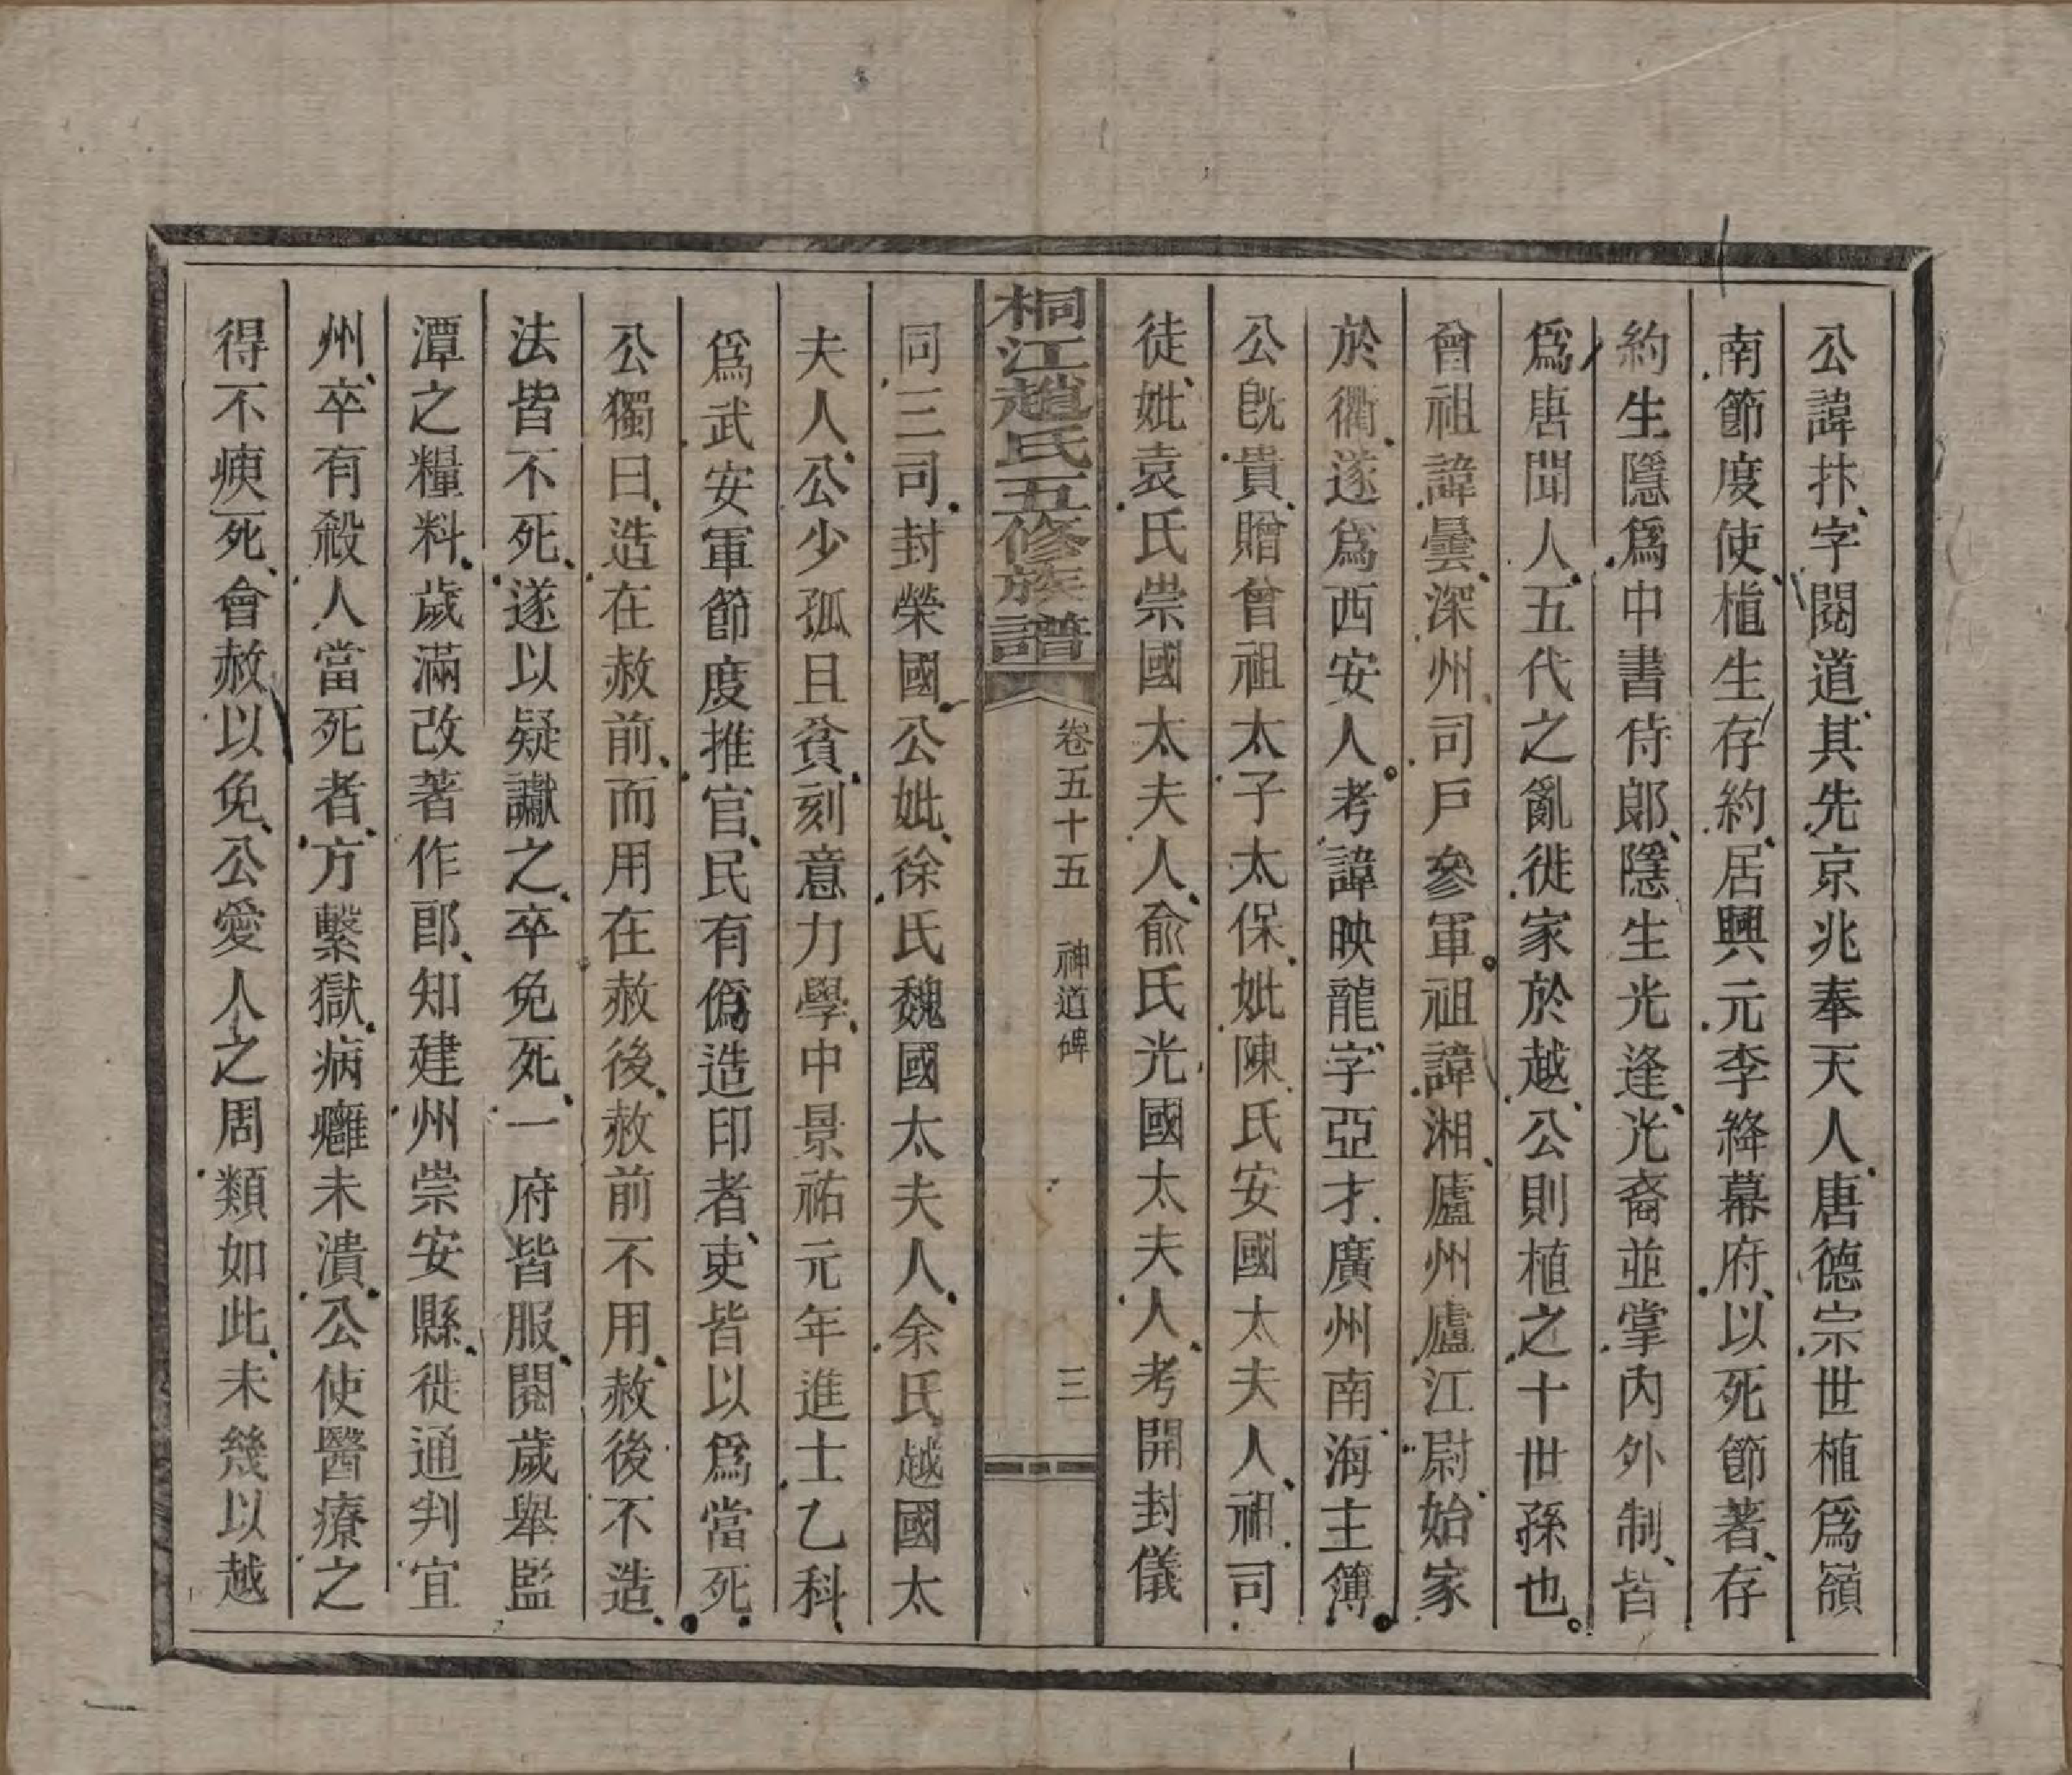 公諱抃字閱道其先京兆奉天人唐德宗世植爲嶺
南節度使植生存約居興元李絳幕府以死節著存
約生隱爲中書侍郎隱生光逢光裔並掌內外制皆
爲唐聞人五代之亂徙家於越公則植之十世孫也
曾祖諱曇深州司戶參軍祖諱湘廬州廬江尉始家
於衢遂爲西安人考諱映龍字亞才廣州南海主簿
公旣貴贈曾祖太子太保妣陳氏安國太夫人祖司
徒妣袁氏崇國太夫人俞氏光國太夫人考開封儀
桐江趙氏五修族譜 卷五十五 神道碑 三
同三司封榮國公妣徐氏魏國太夫人余氏越國太
夫人公少孤且貧刻意力學中景祐元年進士乙科
爲武安軍節度推官民有僞造印者吏皆以爲當死
公獨曰造在赦前而用在赦後赦前不用赦後不造
法皆不死遂以疑讞之卒免死一府皆服閱歲舉監
潭之糧料歲滿改著作郎知建州崇安縣徙通判宜
州卒有殺人當死者方繫獄病癰未潰公使醫療之
得不瘐死會赦以免公愛人之周類如此未幾以越